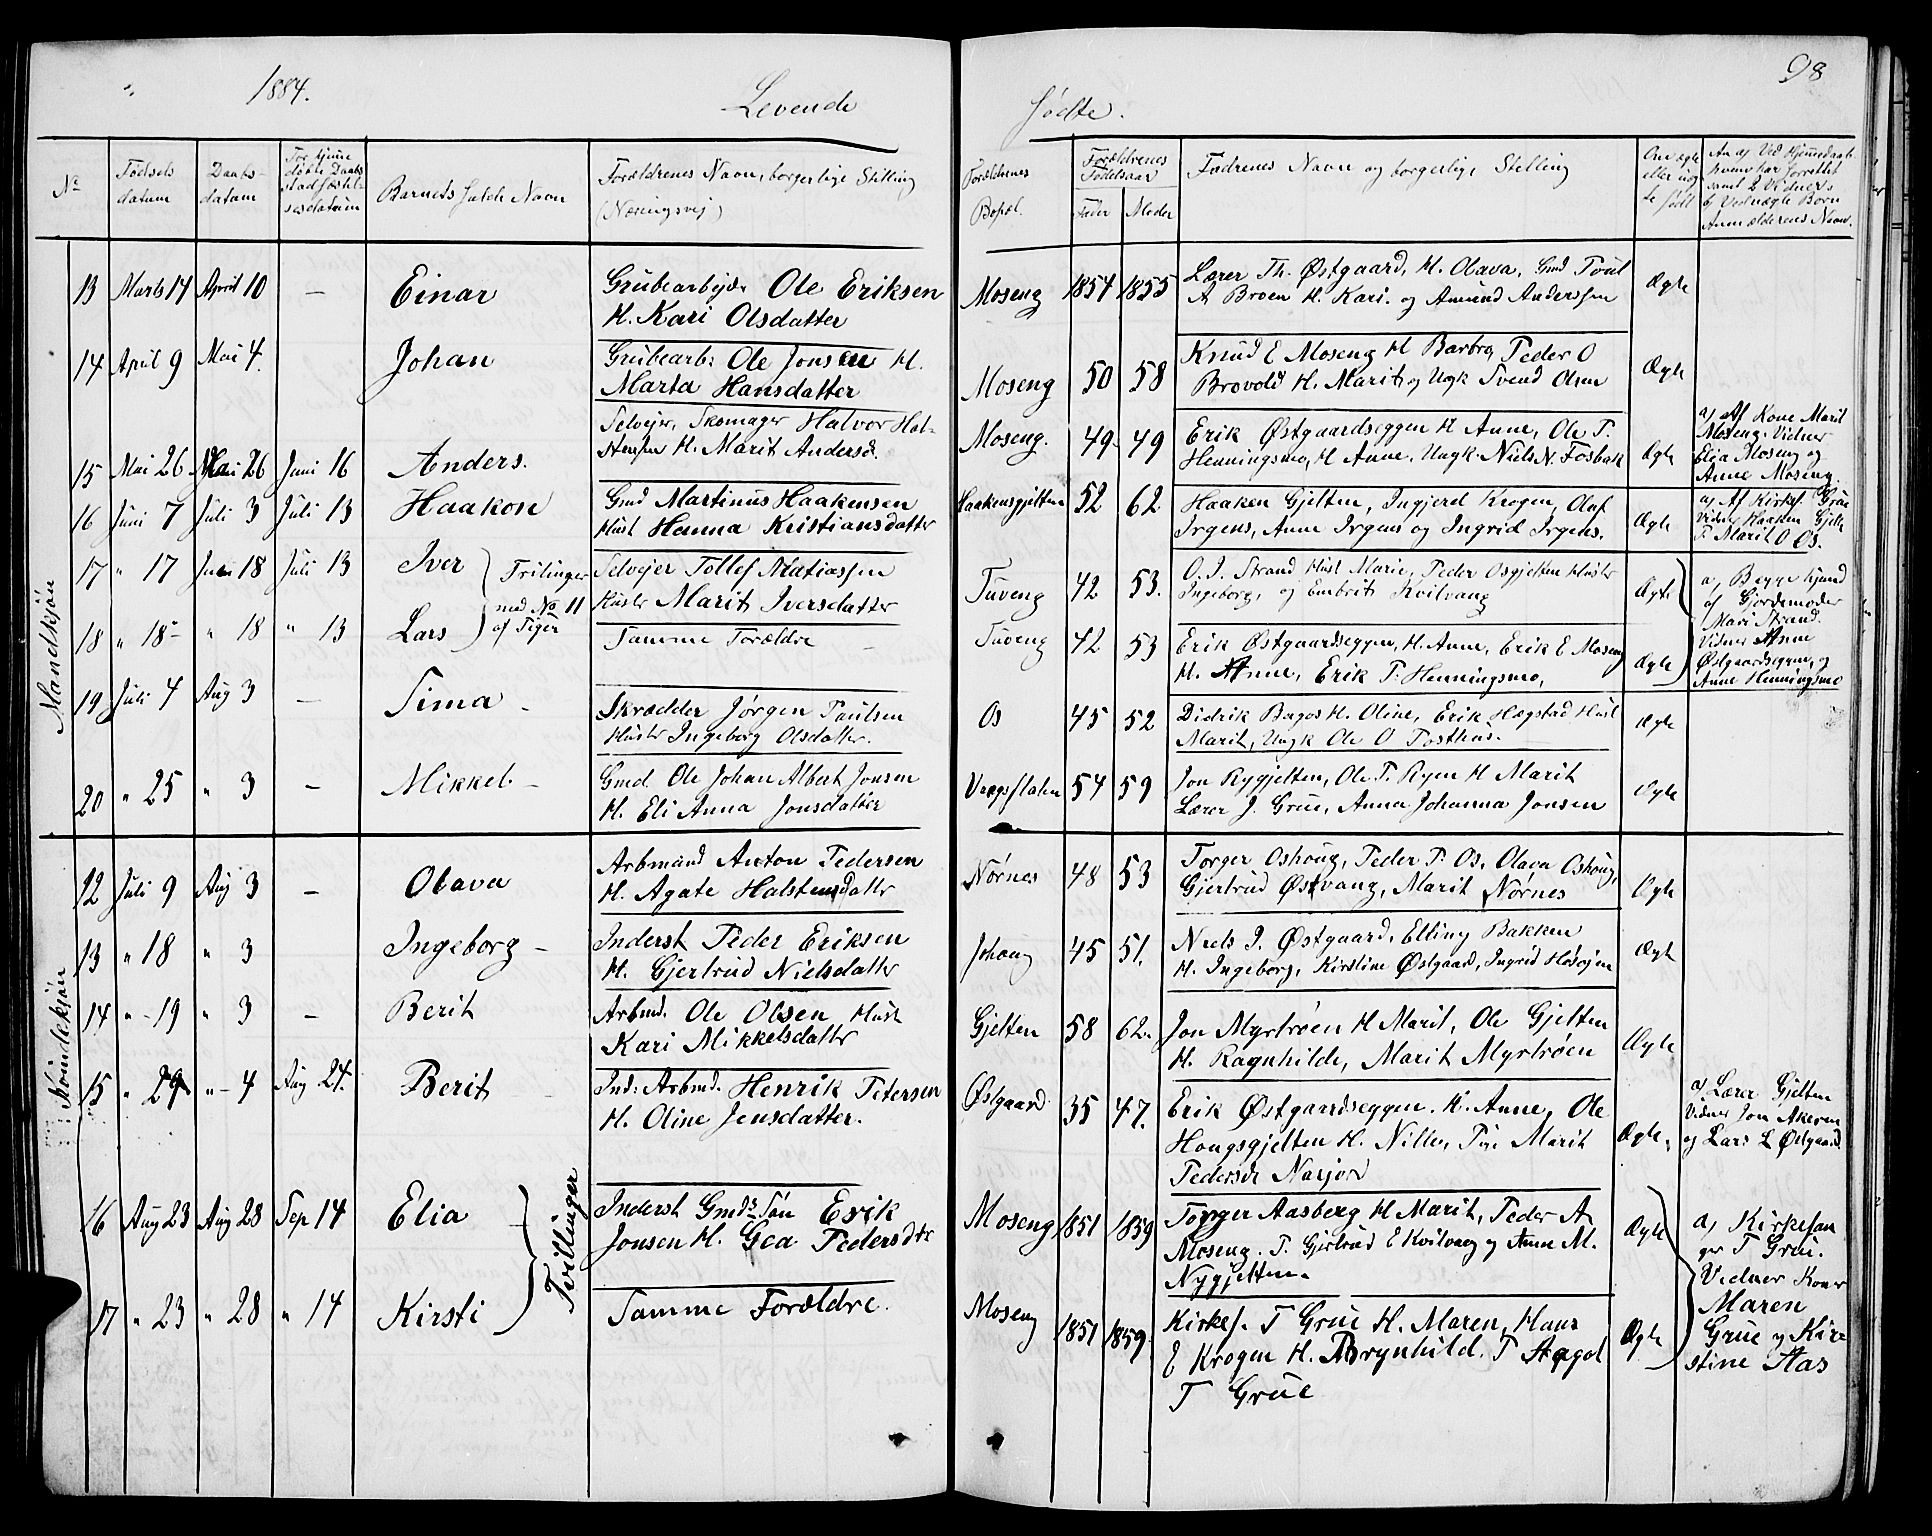 1884.
Levende
No
Fødsels datum
Daabs- datum
For hjemme døbte Daabs stadfæstel- sesdatum
Barnets fulde Navn
Forældrenes Navn, borgerlige Stilling (Næringsvej)
Mandkjøn
13 Marts 14 April 10 — Einar Grubearbejder Ole Eriksen
H. Kari Olsdatter
14 April 9 Mai 4. Johan Grubearb: Ole Jonsen H.
Marta Hansdatter
15 Mai 26 Mai 26 Juni 16 Anders. Selvejer, Skomager Halvor Hal-
stensen H. Marit Andersd.
16 Juni 7 Juli 3 Juli 13 Haakon Gmd Martinus Haakensen
Hust Hanna Kristiansdatter
17 " 17 Juni 18 Juli 13 Iver Selvejer Tollef Matiassen
Hustr Marit Iversdatter
Trilinger
med No 11
af Piger
18 " 18 " 18 " 13 Lars Samme Forældre
19 Juli 4 Aug 3 — Sima Skrædder Jørgen Paulsen
Hustr Ingeborg Olsdatter.
20 " 25 " 3 — Mikkel Gmd. Ole Johan Albert Jonsen
H. Eli Anna Jonsdatter
Kvindekjøn
12 Juli 9 Aug 3 — Olava Arbmand Anton Pedersen
H. Agate Halstensdatter
13 " 18 " 3 Ingeborg Inderst Peder Eriksen
H. Gjertrud Nielsdatter
14 " 19 " 3 — Berit Arbmd. Ole Olsen Hust
Kari Mikkelsdatter
15 " 29 " 4 Aug 24. Berit Ind: Arbmd. Henrik Petersen
H. Oline Jensdatter.
16 Aug 23 Aug 28 Sep 14 Elia Inderst Gmds Søn Erik
Jonsen H. Gea Pedersdtr
Tvillinger
17 " 23 " 28 " 14 Kirsti Samme Forældre.
98
fødte.
Forældrenes Bopæl.
Forældrenes Fødselsaar
Fader Moder
Fadrenes Navn og borgerlige Stilling
Om ægte eller uæg te født
An a) Ved Hjemmedaab hvem har forrettet samt 2 Vidners b) Ved uægte Børn Anmelderens Navn.
Moseng 1854 1855 Lærer Th. Østgaard, H. Olava, Gmd Poul
A Broen H. Kari. og Amund Anderssen Ægte
Moseng 50 58 Knud E Moseng H Barbro, Peder O
Brovold H. Marit, og Ungk Svend Olsen Ægte
Moseng. 49 49 Erik Østgaardseggen H Anne, Ole P.
Henningsmo, H Anne. Ungk. Niels N. Fosbak Ægte
a) Af Kone Marit
Moseng, Vidner
Elia Moseng og
Anne Moseng.
Haakensgjelten 52 62 Haaken Gjelten, Ingjerd Krogen, Oluf
Irgens, Anne Irgens og Ingrid Irgens. Ægte
a) Af Kirkes. Grue
Vidner Haaken Gjelt
P. Marit O Os.
Tuveng 42 53. O. J. Strand Hust Marie, Peder Osgjelten Hustr
Ingeborg, og Embrit Kvilvang Ægte
a) Begge hjemd
af Gjordemoder
Mari Strand.
Vidner Anne
Østgaardseggen, og
Anne Henningsmo
Tuveng 42 53 Erik Østgaardseggen, H. Anne, Erik E Moseng
H. Anne, Erik P. Henningsmo, Ægte
Os 45 52 Didrik Bagos H. Oline, Erik Hægstad Hust
Marit, Ungk Ole O Posthus. Ægte
54 59 Jon Rygjelten, Ole P. Ryen H Marit
Lærer J. Grue, Anna Johanna Jonsen Ægte
Nørnes 48 53 Torger Oshoug, Peder P. Os, Olava Oshoug,
Gjertrud Østvang, Marit Nørnes Ægte
45 51. Niels J. Østgaard, Elling Bakken
H. Ingeborg, Kirstine Østgaard, Ingrid Ægte
Gjelten 58 62. Jon Myrtrøen H Marit, Ole Gjelten
H. Ragnhilde, Marit Myrtrøen Ægte
Østgaard 35 47. Erik Østgaardseggen. H. Anne, Ole
Hougsgjelten H. Nille, Pige Marit
Pedersdr Narjor Ægte.
a) Lærer Gjelten
Vidner Jon Akeren
og Lars L Østgaard
Moseng 1851 1859 Torger Aasberg H Marit, Peder A
Moseng. P. Gjertrud E Kvilvang og Anne M.
Nygjelten. Ægte
a) Kirkesan
ger T Grue.
Vidner Koner
Maren
Grue og Kir
stine Aas
Moseng 1851 1859. Kirkes. T Grue H. Maren, Hans
E Krogen H. Brynhild. P Aagot
T Grue Ægte